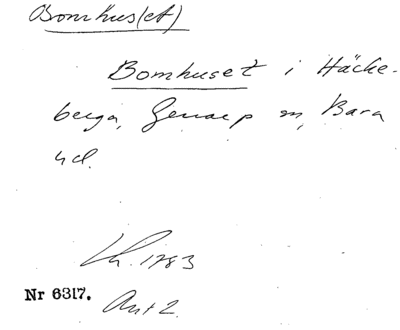 Bomhus(et)
Bomhuset i Häcke-
berga, Genarp sn, Bara
hd.
Lh. 1783
Nr 6317.
Ant 2.